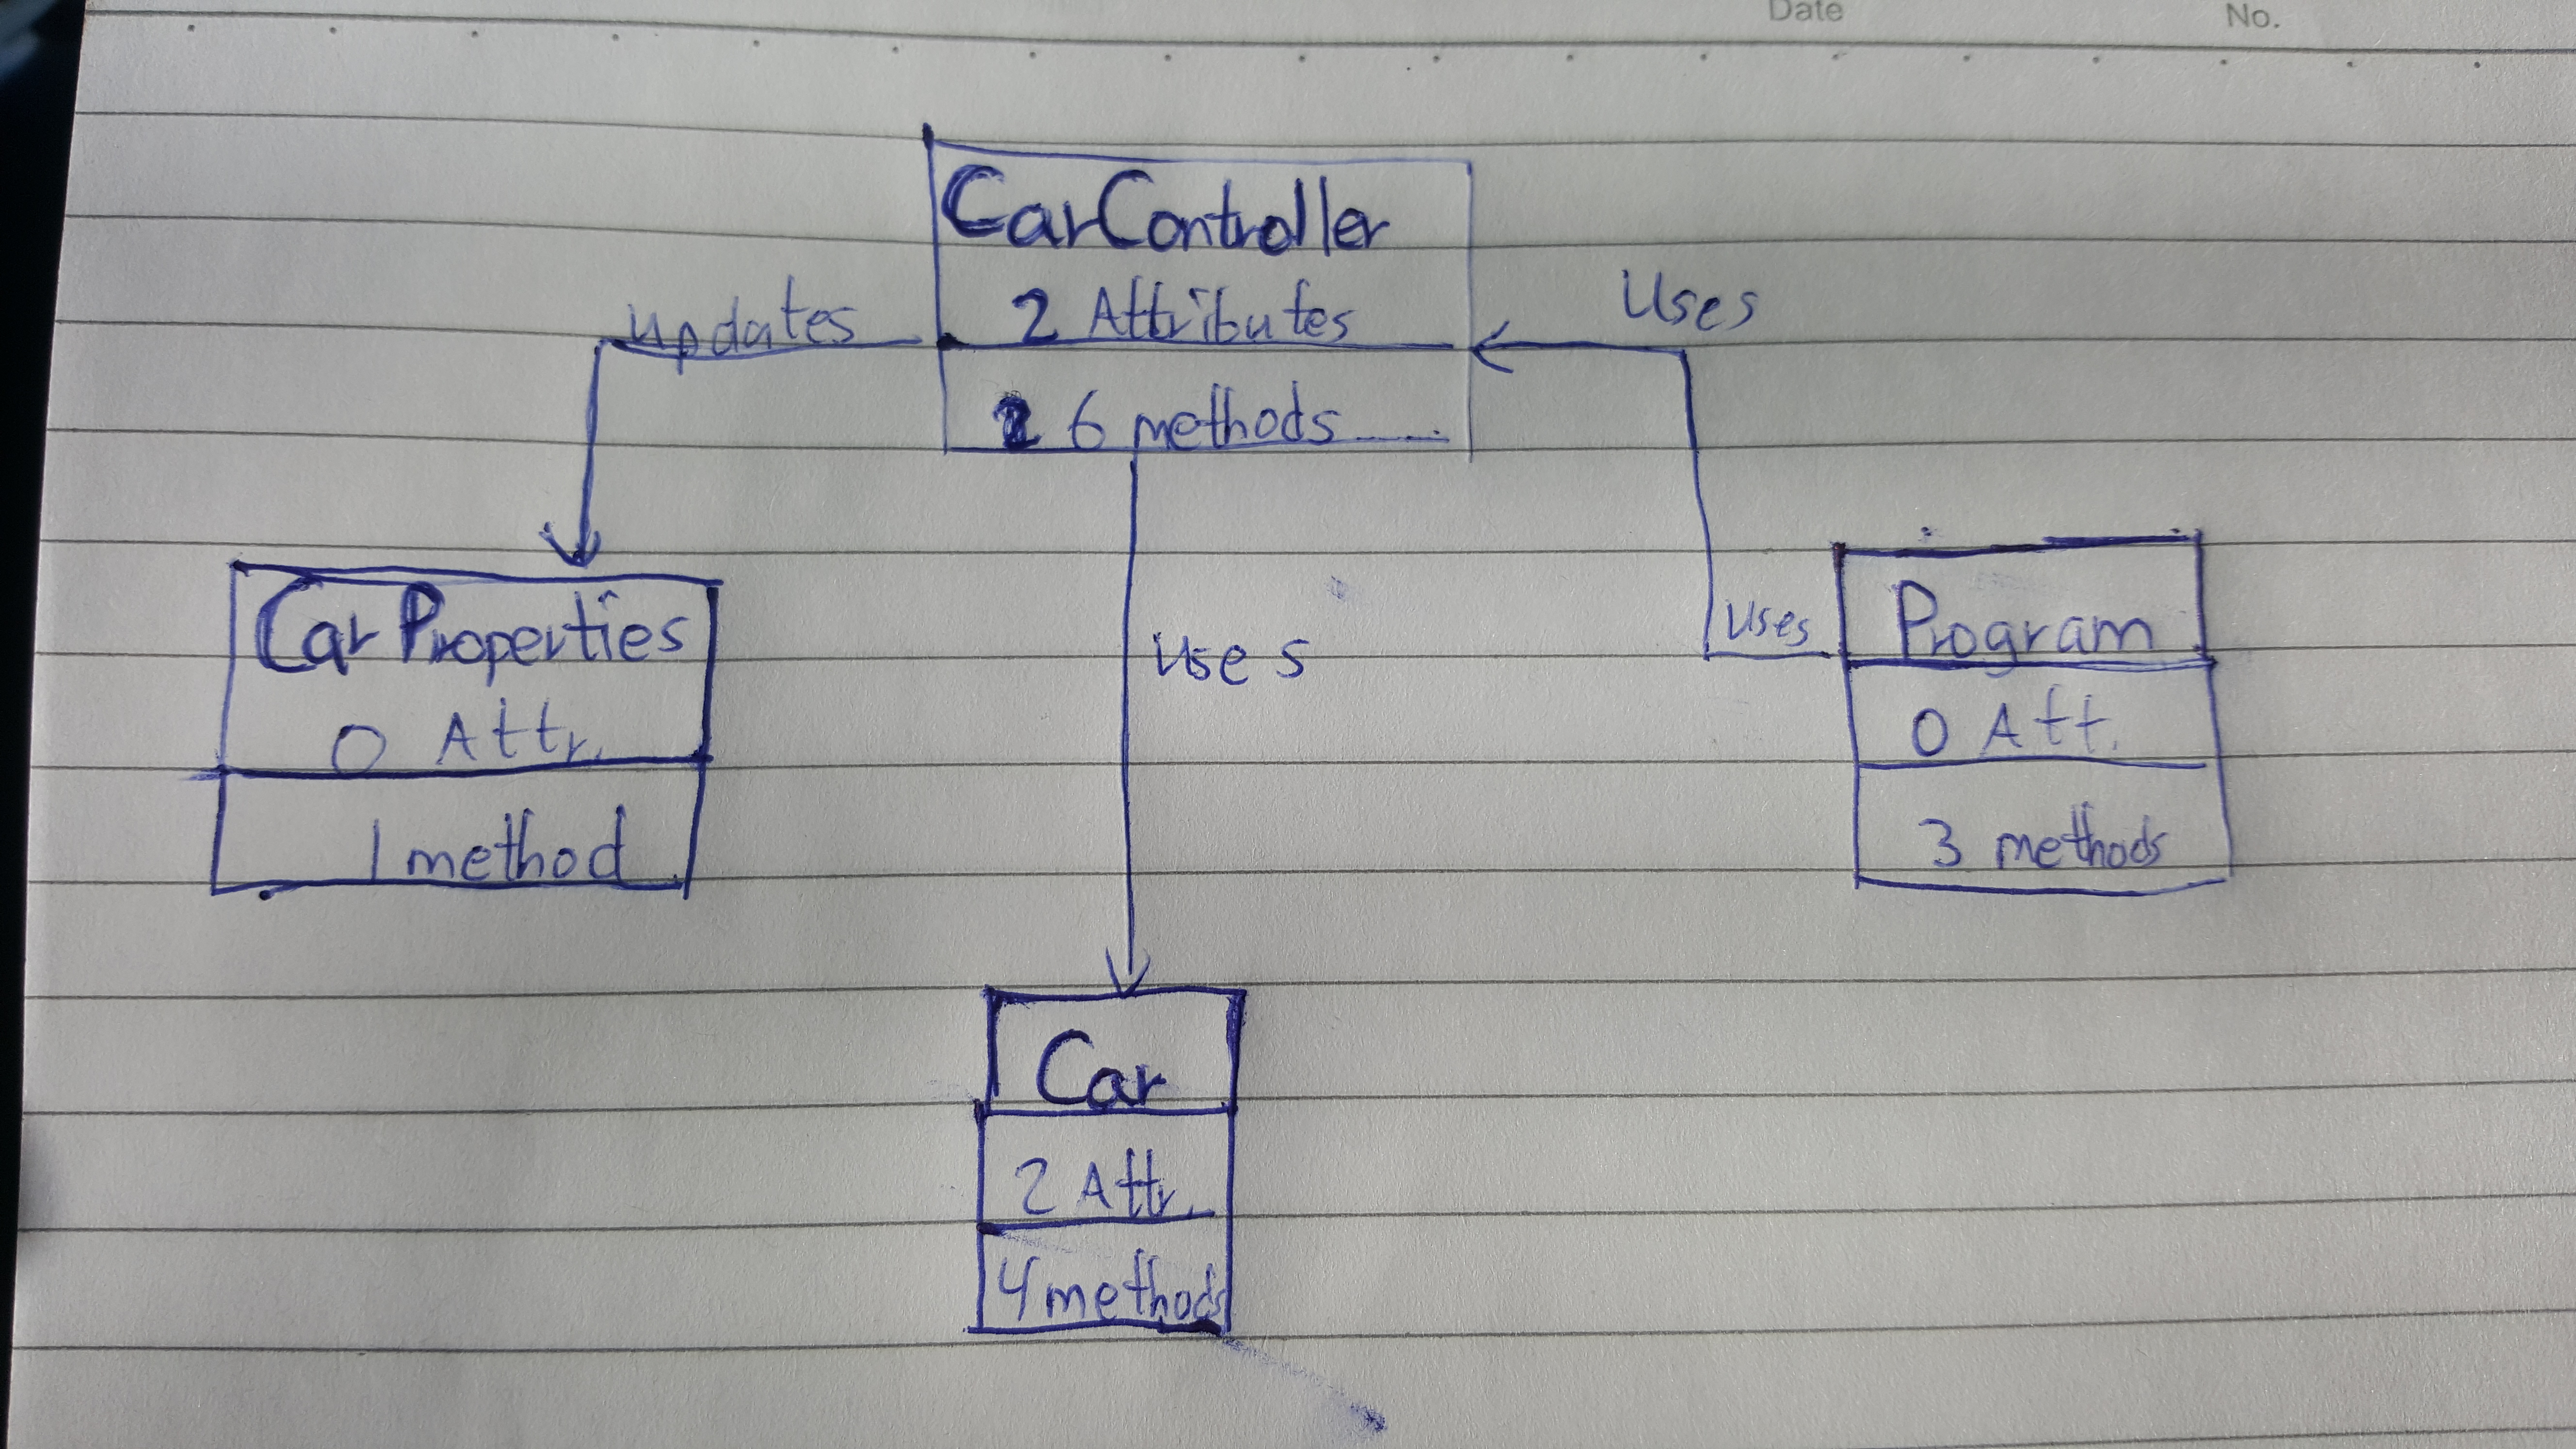 Date
No.
CarController
2 Attributes
6 methods
updates
uses
uses
uses
CarProperties
0 Attr.
1 method
Program
0 Att.
3 methods
Car
2 Attr.
4 methods